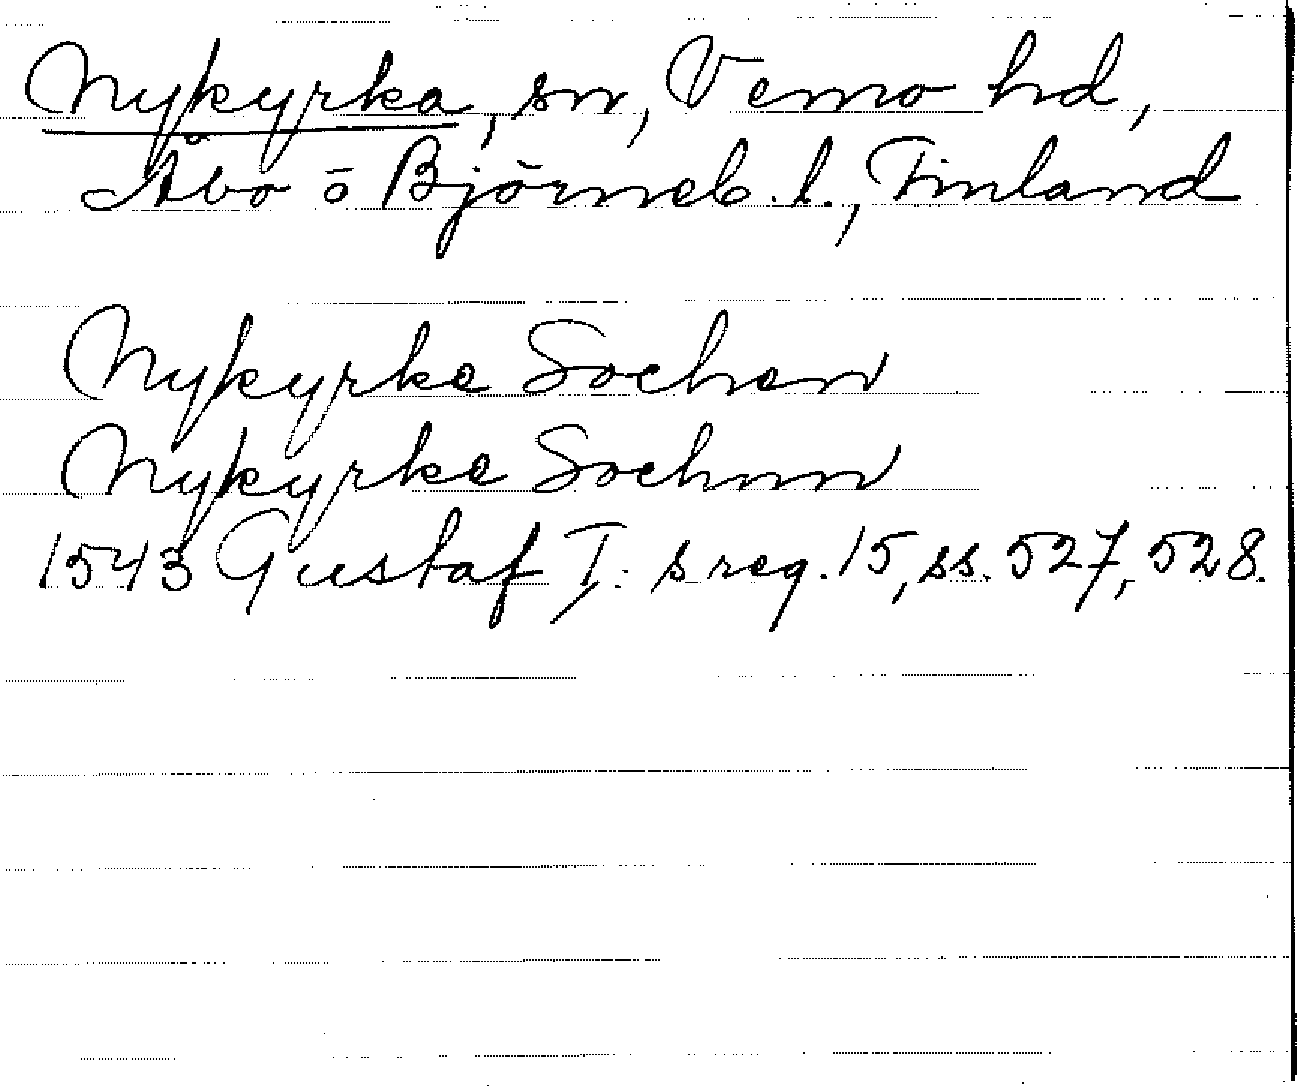 Nykyrka, sn, Vemo hd,
Åbo o Björneb. l., Finland
Nykyrke Sochen
Nykyrke Sochnn
1543 Gustaf I: s reg. 15, ss. 527, 528.